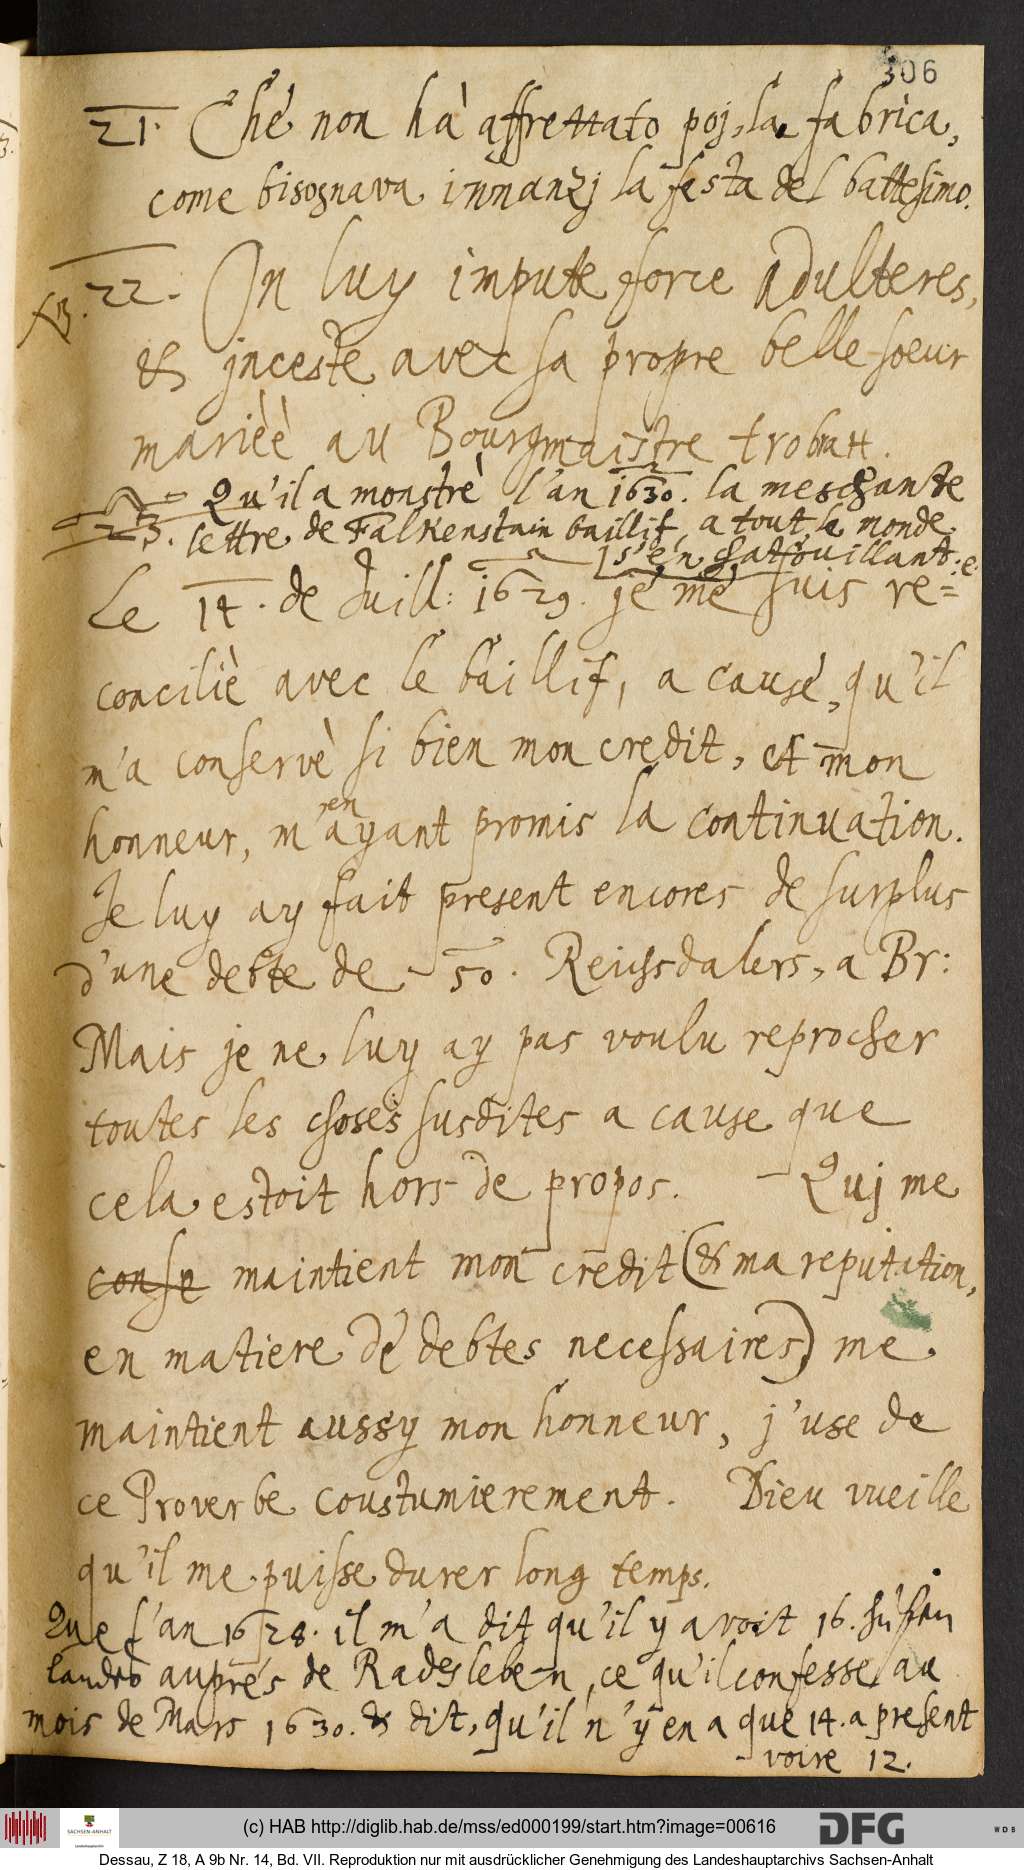 306
21. Chè non hà affrettato poj, la fabrica,
come bisognava innanzj la festa del battesimo.
NB. 22. On luy impute force adulteres,
& jnceste avec sa propre belle soeur
marièè au Bourgmaistre trobatt.
23. Qu'il a monstrè l'an 1630. la meschante
lettre de Falkenstain baillif a tout le monde
[s'en chatouillant: e.
Le 14. de Juill: 1629. je me suis re=
conciliè avec le baillif, a cause, qu'il
m'a conservè si bien mon credit, et mon
ren
honneur, m'ayant promis la continuation.
Je luy ay fait present encores de surplus
d'une debte de 50. Reichsdalers, a Br:
Mais je ne luy ay pas voulu reprocher
toutes les choses susdites a cause que
cela estoit hors de propos. - Quj me
conse maintient mon credit (& ma reputation,
en matiere de debtes necessaires) me
maintient aussy mon honneur, j'use de
ce Proverbe coustumierement. Dieu vueille
qu'il me puisse durer long temps.
Que l'an 1628. il m'a dit qu'il y avoit 16. hüfen
landes auprés de Radesleben, ce qu'il confesse au
mois de Mars 1630. & dit, qu'il n'y en a que 14. a present
voire 12.
SACHSEN-ANHALT
Landeshauptarchiv
(c) HAB http://diglib.hab.de/mss/ed000199/start.htm?image=00616
DFG
WDB
Dessau, Z 18, A 9b Nr. 14, Bd. VII. Reproduktion nur mit ausdrücklicher Genehmigung des Landeshauptarchivs Sachsen-Anhalt